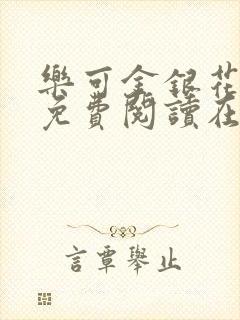 樂可金銀花
免費閱讀在
言覃舉止